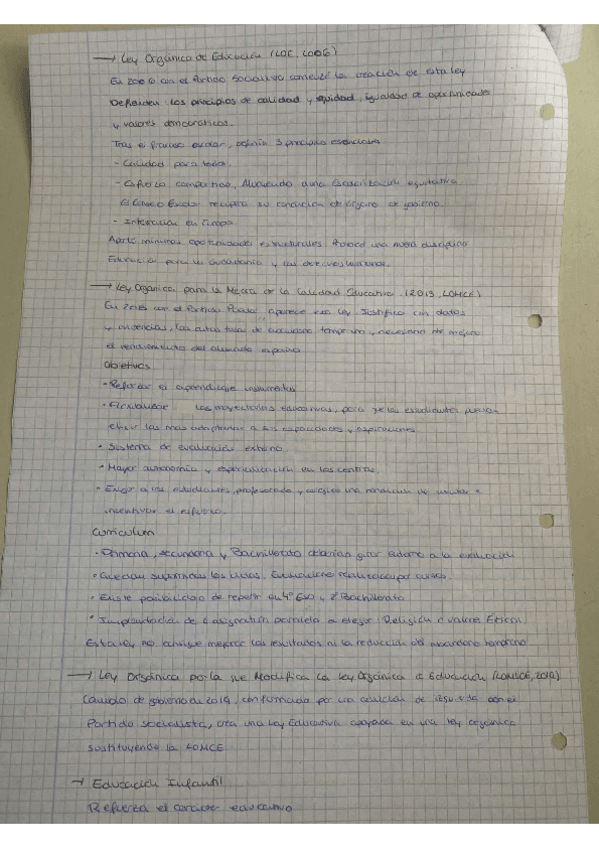 → Ley Orgánica de Educación (LOE, 2006)
En 2006 con el Partido Socialista comenzó la creación de esta ley
Defienden los principios de calidad y equidad, igualdad de oportunidades
y valores democráticos.
Tras el proceso escolar, definin 3 principios esenciales
- Calidad para todos.
- Esfuerzo compartido, Abogando a una Escolarización equitativa
El Consejo Escolar recupera su condición de órgano de gobierno.
- Interacción en Europa
Aportó mínimas oportunidades estructurales. Provocó una nueva disciplina
Educación para la ciudadanía y los
→ Ley Orgánica para la Mejora de la Calidad Educativa. (2013, LOMCE)
En 2013 con el Partido Popular aparece esta ley Justifica con datos
y evidencias, las altas tasas de abandono temprano y necesario de mejorar
el rendimiento del alumnado español
Objetivos
• Reforzar el aprendizaje instrumental
• Flexibilizar las trayectorias educativas, para que los estudiantes puedan
elegir las más adaptadas a sus capacidades y aspiraciones.
• Sistema de evaluación externo.
• Mayor autonomía y especialización en los centros.
• Exigir a los estudiantes, profesorado y colegios una rendición de cuentas e
incentivar el esfuerzo.
Curriculum
• Primaria, secundaria y Bachillerato deberían girar entorno a la evaluación
• Quedan suprimidos los ciclos. Evaluaciones realizadas por cursos.
• Existe posibilidad de repetir en 4º Eso y 2º Bachillerato
• Implantación de 1 asignatura paralela a elegir: Religión o valores Éticos.
Esta ley no consigue mejorar los resultados ni la reducción del abandono temprano
→ Ley Orgánica por la que Modifica la Ley Orgánica de Educación (LOMLOE, 2019)
Cambio de gobierno en 2019, conformado por una coalición de izquierda con el
Partido socialista, crea una Ley Educativa apoyada en una ley orgánica
sustituyendo la LOMCE
→ Educación Infantil
Refuerza el carácter educativo